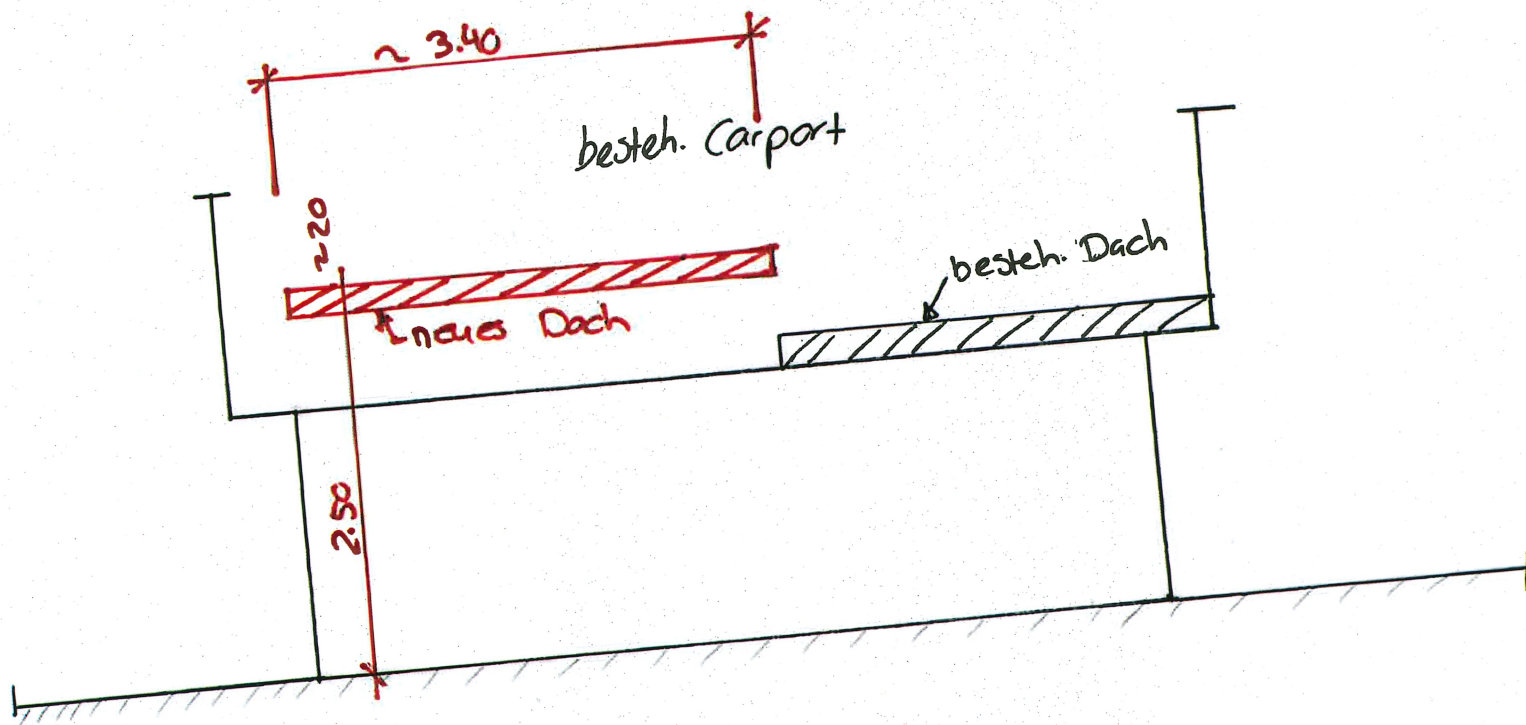 ~ 3.40
besteh. Carport
~20
besteh. Dach
neues Dach
2.50